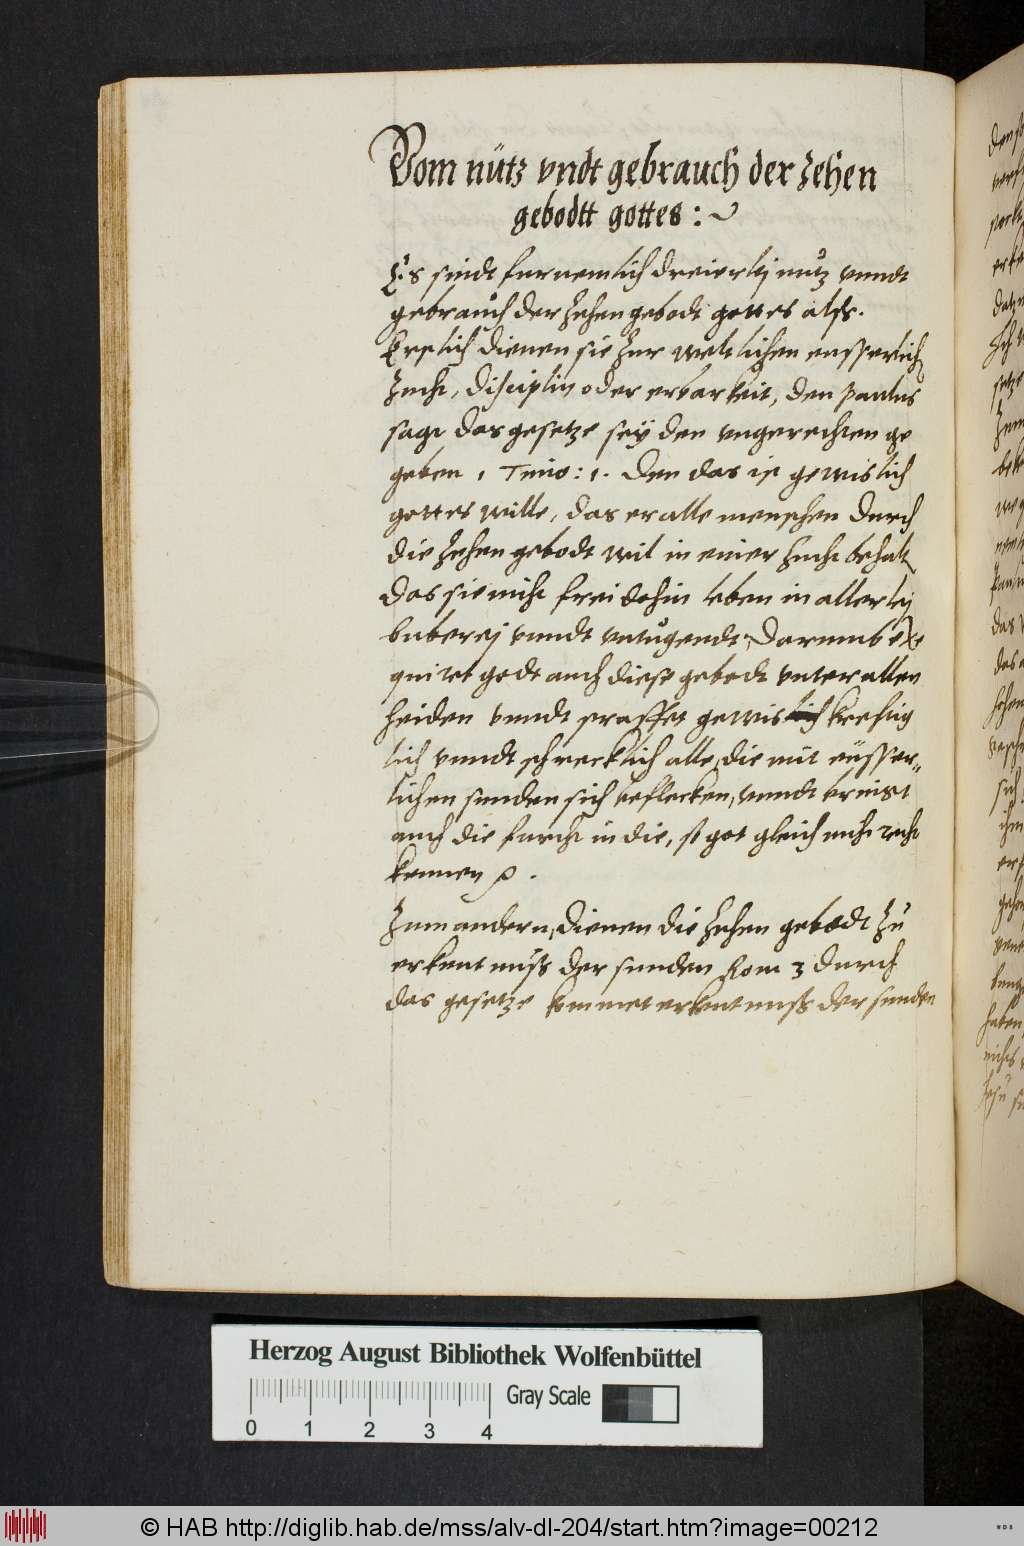 Vom nütz vndt gebrauch der zehen
gebodtt gottes :
Es sindt furnemlich dreierlej nutz vnndt
gebrauch der Zehen gebodt gottes alss.
Erstlich dienen sie Zur weltlichen eusserlich
Zucht, disciplin oder erbarkeit, den Paulus
sagt das gesetze seÿ den vngerechten ge
geben 1 Timo: 1. Den das ist gewislich
gottes wille, das er alle menschen durch
die Zehen gebodt wil in einer Zucht behalt
das sie nicht frei dohin leben in allerlej
buberej vnndt vntugendt, Darumb exe
quiret godt auch diese gebodt vnter allen
heiden vnndt straffet gewis krefftig
lich vnndt schrecklich alle, die mit eüsser„
lichen sunden sich beflecken, vnndt
auch die furcht in die, so got gleich nicht recht
kennen
Zum andern, dienen die Zehen gebodt Zu
erkentnüss der sunden Rom 3 durch
das gesetze kommet erkentnuss der sunden
Herzog August Bibliothek Wolfenbüttel
Gray Scale
0 1 2 3 4
© HAB http://diglib.hab.de/mss/alv-dl-204/start.htm?image=00212